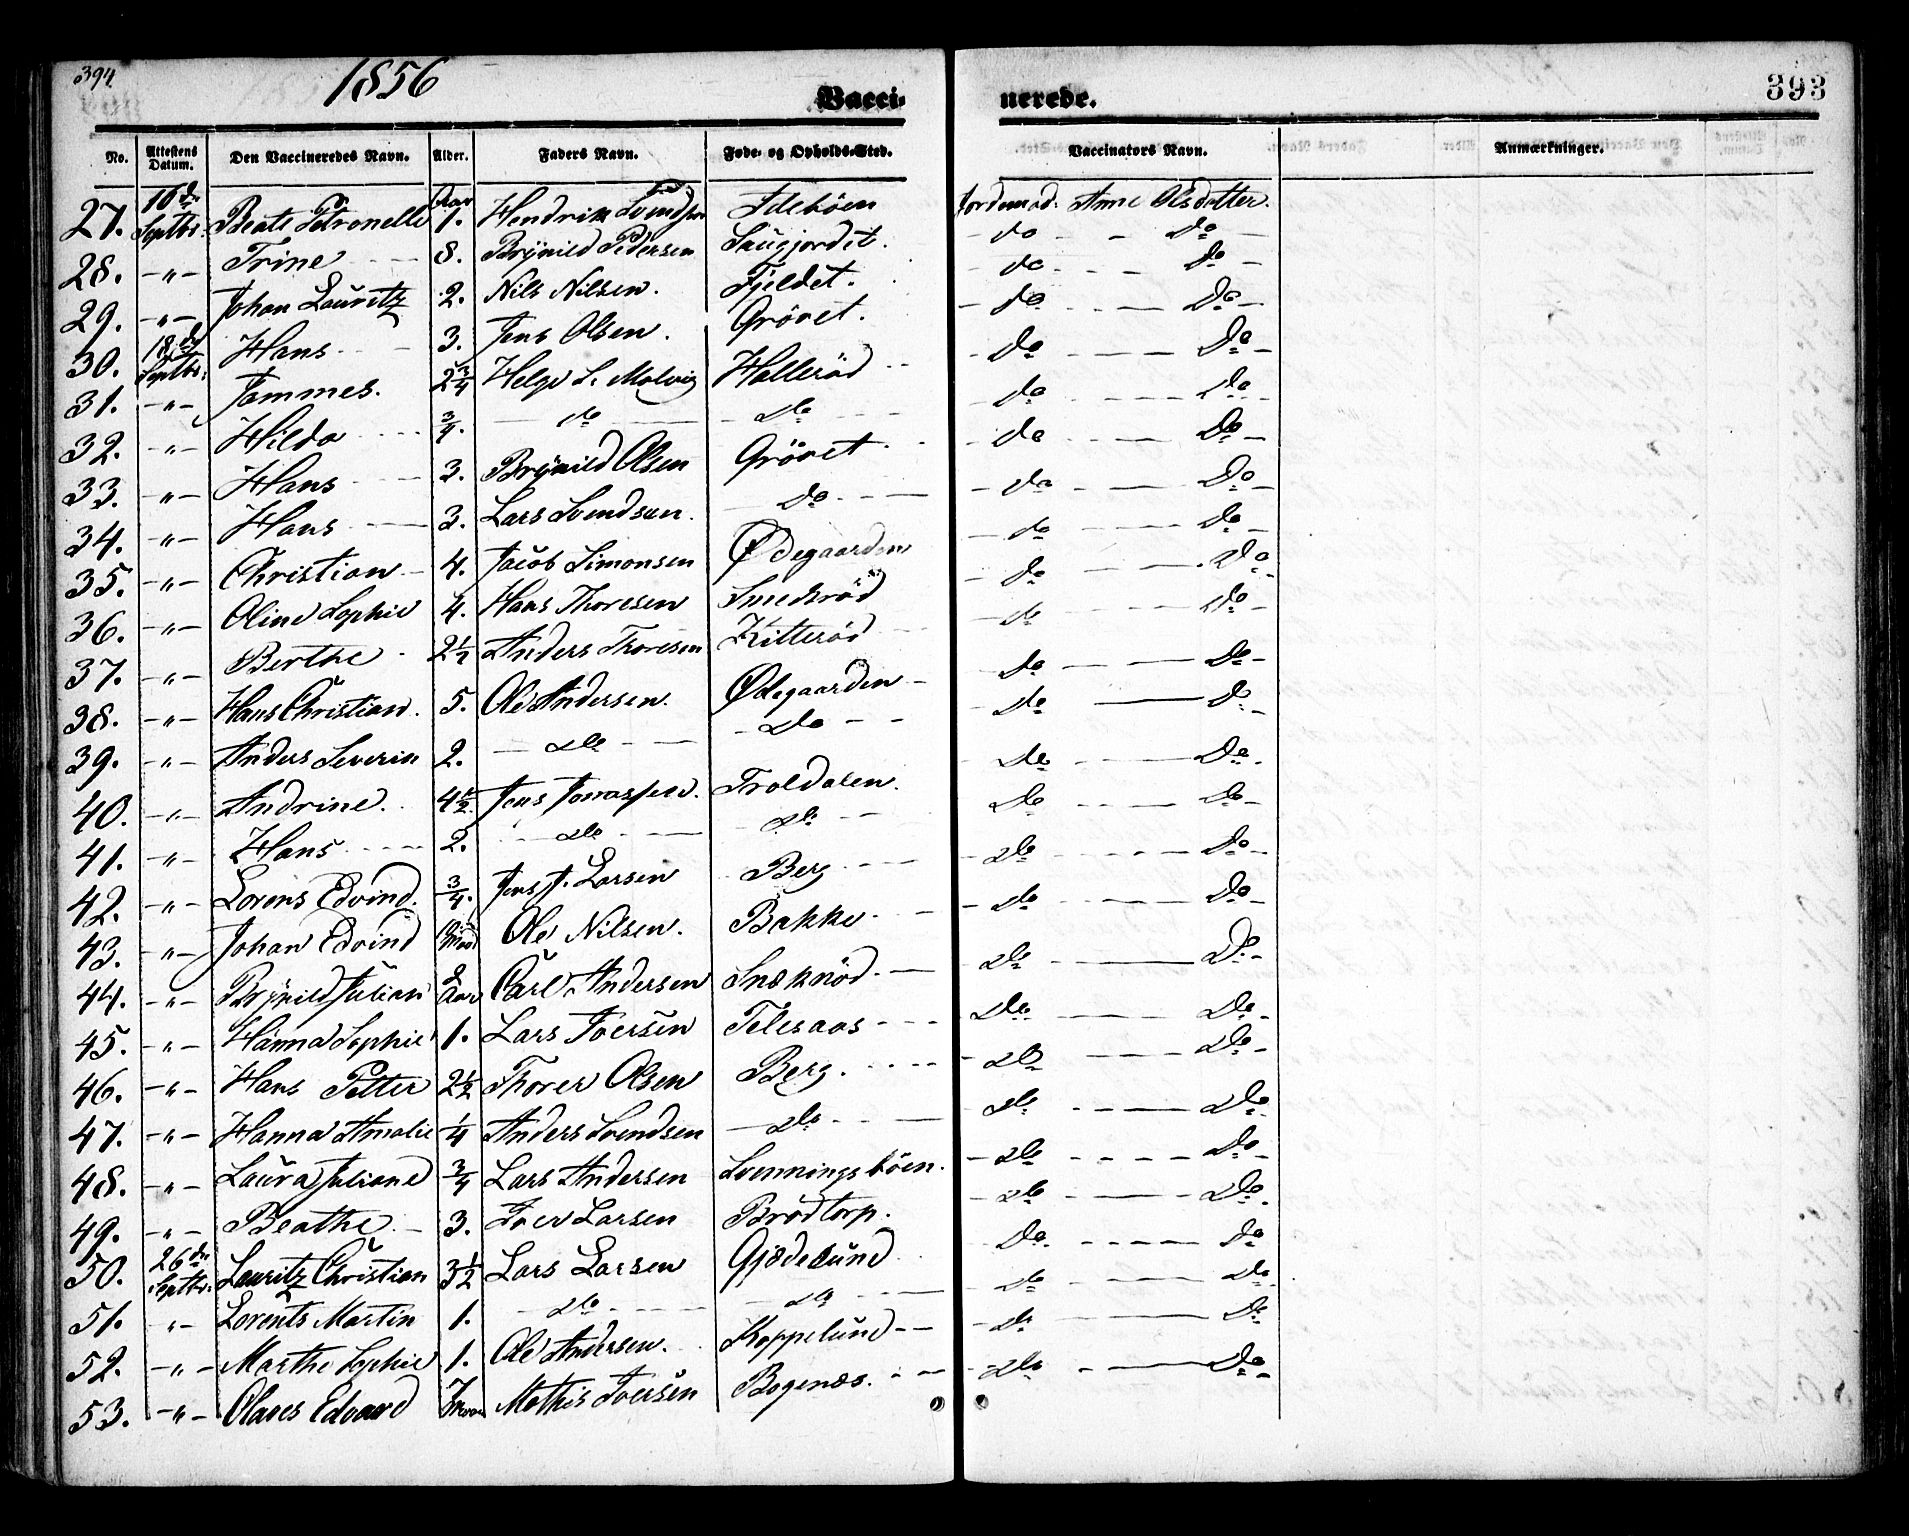 394. 1856 Vacci- nerede. 393
No. Attestens Datum. Den Vaccineredes Navn. Alder. Faders Navn. Føde- og Opholds-Sted. Vaccinators Navn. Anmærkninger.
27. 16de Septbr. Beate Petronelle Aar 1. Hendrik Svendsen Idebøen Jordemod. Anne Olsdatter.
28. -"- Trine 8. Brÿnild Pedersen Saugjordet. do Do
29. -"- Johan Lauritz 2. Nils Nilsen. Fjeldet. do Do
30. 18de Septbr. Hans 3. Jens Olsen. Grövet. do Do
31. -"- Jammes. 2¾ Helge S. Molvig Halleröd do Do
32. -"- Hilda ¾. do do do Do
33. -"- Hans 3. Brÿnild Olsen Grövet do Do
34. -"- Hans 3. Lars Svendsen. do do Do
35. -"- Christian 4. Jacob Simonsen Ødegaarden do Do
36. -"- Oline Sophie 4. Hans Thoresen Smedsröd do Do
37. -"- Berthe 2½ Anders Thoresen Kitteröd do Do
38. -"- Hans Christian. 5. Ole Andersen. Ødegaarden do Do
39. -"- Anders Severin 2. do do do Do
40. -"- Andrine. 4½. Jens Jonassen. Troldalen. do Do
41. -"- Hans 2. do do do Do
42. -"- Lorens Edvind. ¾. Jens J. Larsen Berg do Do
43. -"- Johan Edvind Ole Nilsen. Bakke do Do
44. -"- Brÿnild Julian Aar Carl Andersen Snekröd do Do
45. -"- Hanna Sophie 1. Lars Iversen Telesaas do Do
46. -"- Hans Petter 2½ Thorer Olsen Berg. do Do
47. -"- Hanna Amalie ¼ Anders Svendsen do do Do
48. -"- Laura Juliane ¾ Lars Andersen Svenningsböen. do Do
49. -"- Beathe 3. Iver Larsen Brödtorp. do Do
50. 26de Septbr. Lauritz Christian 3½ Lars Larsen Gjødesund do Do
51. -"- Lorents Martin 1. do do do Do
52. -"- Marthe Sophie 1. Ole Andersen. Koppelund do Do
53. -"- Olaves Edvard Mathis Iversen Bogenæs. do Do